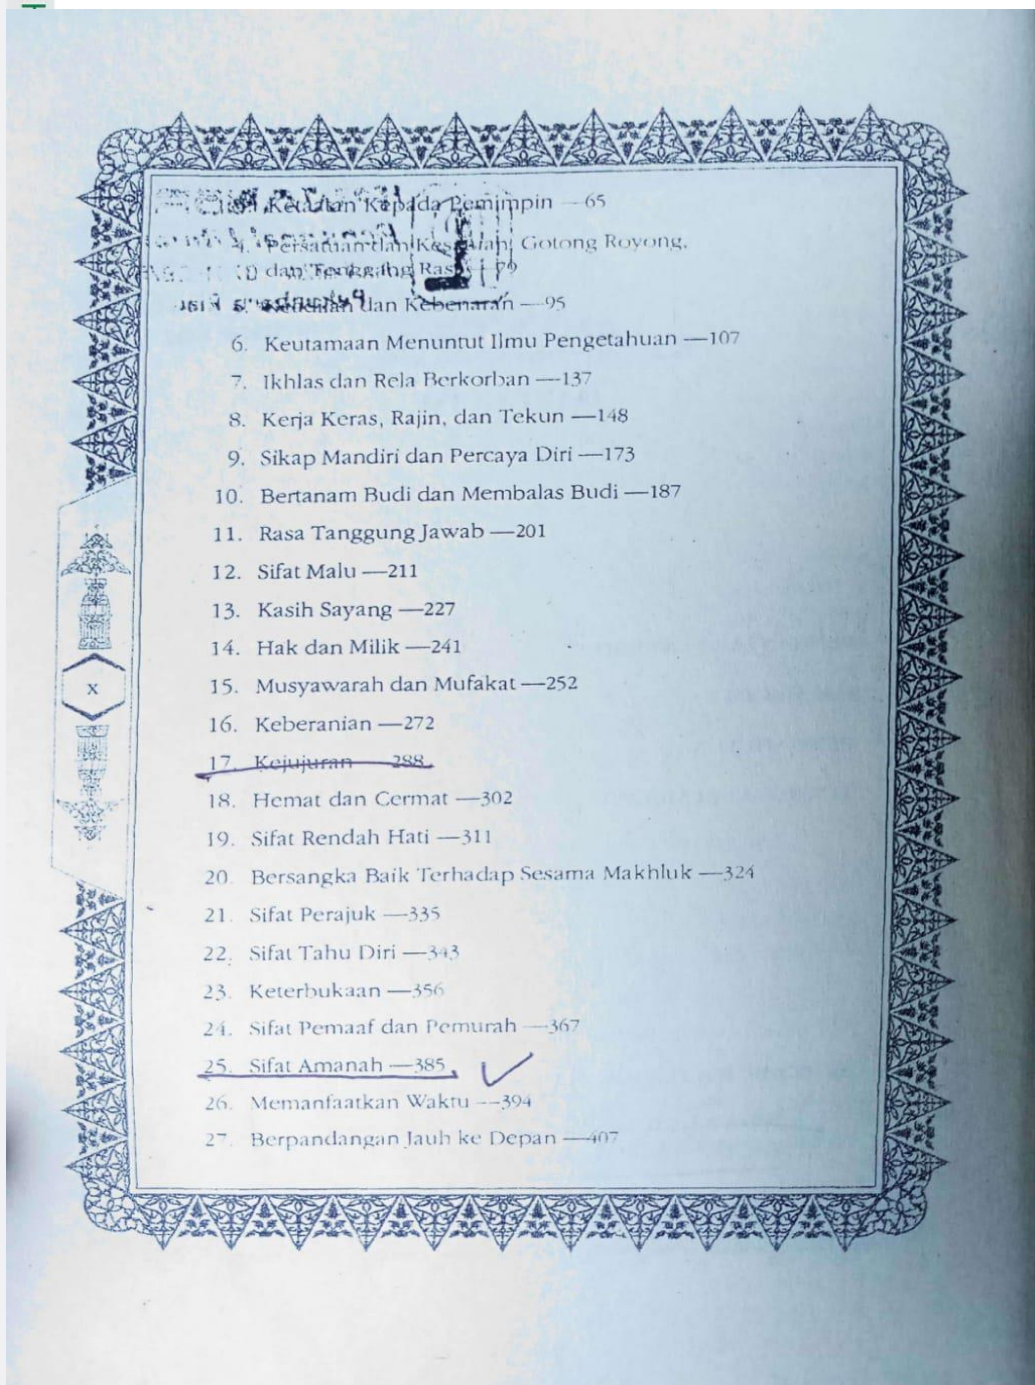 Ketaatan Kepada Pemimpin — 65
4. Persamaan dan Gotong Royong,
dan Tenggang Rasa 79
dan Kebenaran —95
6. Keutamaan Menuntut Ilmu Pengetahuan —107
7. Ikhlas dan Rela Berkorban —137
8. Kerja Keras, Rajin, dan Tekun —148
9. Sikap Mandiri dan Percaya Diri —173
10. Bertanam Budi dan Membalas Budi —187
11. Rasa Tanggung Jawab —201
12. Sifat Malu —211
13. Kasih Sayang —227
14. Hak dan Milik —241
15. Musyawarah dan Mufakat —252
x
16. Keberanian —272
17. Kejujuran —288
18. Hemat dan Cermat —302
19. Sifat Rendah Hati —311
20. Bersangka Baik Terhadap Sesama Makhluk —324
21. Sifat Perajuk —335
22. Sifat Tahu Diri —343
23. Keterbukaan —356
24. Sifat Pemaaf dan Pemurah —367
25. Sifat Amanah —385
26. Memanfaatkan Waktu —394
27. Berpandangan Jauh ke Depan —407